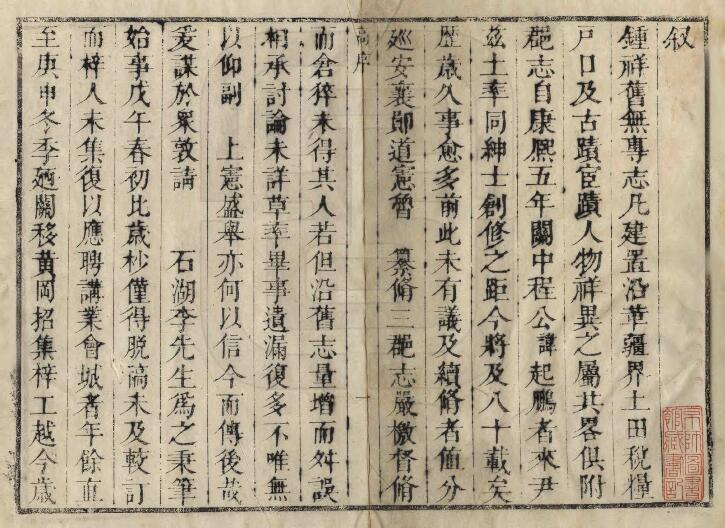 叙
鍾祥舊無專志凡建置沿革疆界土田稅糧
戸口及古蹟宦蹟人物祥異之屬其畧俱附
郡志自康熙五年關中程公諱起鵬者來尹
玆土率同紳士創修之距今將及八十載矣
歷歲久事愈多前此未有議及續脩者値分
廵安襄鄖道憲魯 纂脩三郡志嚴檄督脩
高序
而倉猝未得其人若但沿舊志量增而舛誤
相承討論未詳草率畢事遺漏復多不唯無
以仰副 上憲盛舉亦何以信今而傳後哉
爰謀於衆敦請 石湖李先生爲之秉筆
始事戊午春初比歲杪僅得脫稿未及較訂
而梓人未集復以應聘講業會城者年餘直
至庚申冬季廼關移黃岡招集梓工越今歲